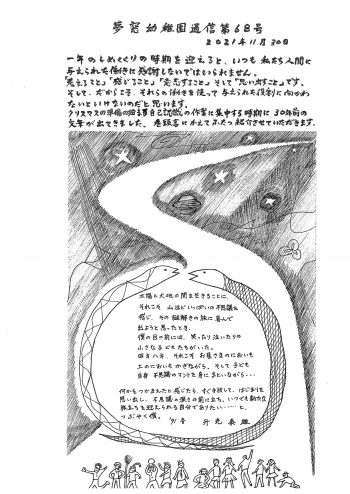 夢窓幼稚園通信第68号
2021年11月30日
一年のしめくくりの時期を迎えると、いつも私たち人間に
与えられた働きに感謝しないではいられません。
「考えること」「感じること」「意志すること」そして「思い出すこと」です。
そして、だからこそ、それらの働きを使って与えられた役割に向かわ
ないといけないのだと思います。
クリスマスの準備の自己認識の作業に集中する時期に30年前の
文章が出てきました。巻頭言にかえてふたつ紹介させていただきます。
太陽と大地の間を生きることに、
それこそ山ほどいっぱいの不思議を
感じ、その謎解きの旅に喜んで
出ようと思ったとき、
僕の目の前には、笑ったり泣いたりの
小さな子どもたちがいた。
四方八方、それこそお星さまのにおいも
土のにおいもかぎながら、そして子ども
自身不思議のマントを身にまといながら・・・
何かをつかまえたと感じたら、すぐ手放して、はじまりを
思い出し、不思議の強さの前に立ち、いつでも新たな
旅立ちを迎えられる自分でありたい・・・・・と、
つぶやく僕。
'91 春 升光泰雄